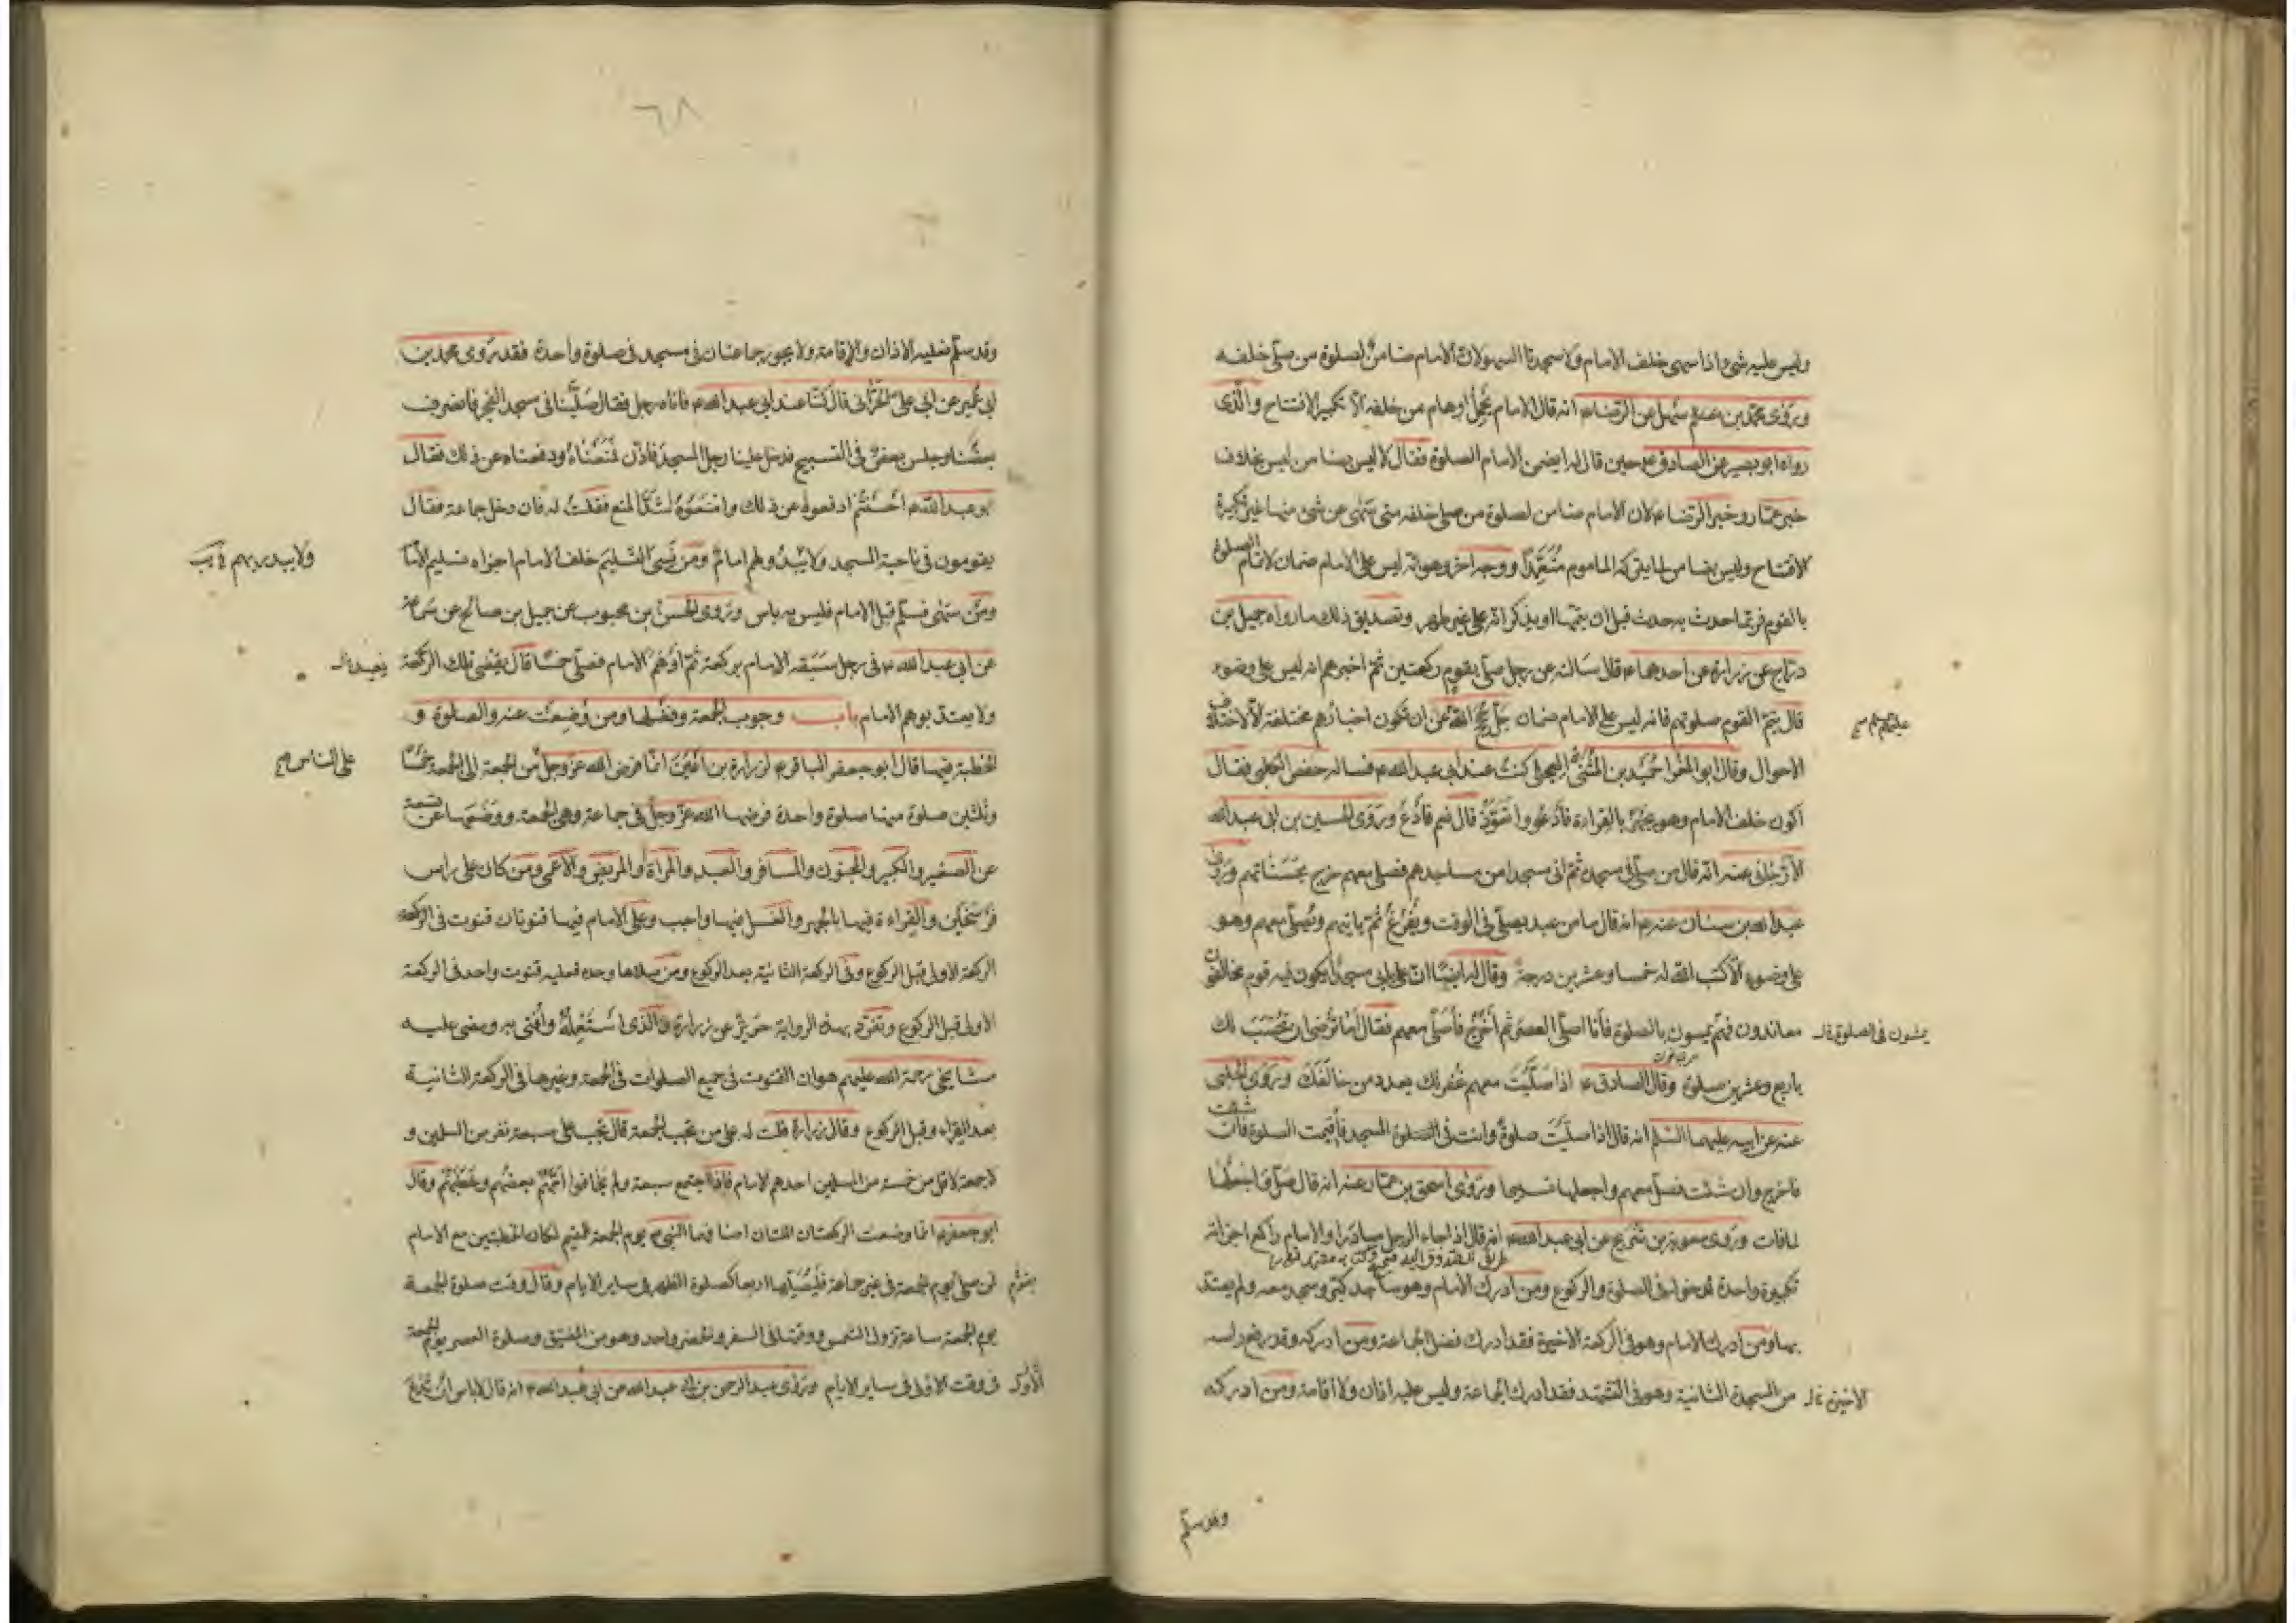 وليس عليه شئ اذا سهى خلف الامام ولا سجدتا السهو لان الامام ضامن لصلوة من صلى خلفه
وروى محمد بن سهل عن الرضا انه قال الامام يحمل اوهام من خلفه الا تكبيرة الافتتاح والذى
رواه ابو بصير عن الصادق حين قال له ايضمن الامام الصلوة فقال لا ليس بضامن ليس بخلاف
خبر عمار وخبر الرضا لان الامام ضامن لصلوة من صلى خلفه متى سهى عن شئ منها غير تكبيرة
الافتتاح وليس بضامن لما يتركه الماموم متعمدا ووجه اخر وهو انه ليس على الامام ضمان لاتمام الصلوة
بالقوم فربما حدث به حدث قبل ان يتمها او يذكر انه على غير طهر وتصديق ذلك ما رواه جميل بن
دراج عن زرارة عن احدهما قال سالته عن رجل صلى بقوم ركعتين ثم اخبرهم انه ليس على وضوء
قال يتم القوم صلوتهم فانه ليس على الامام ضمان جل حجج الله عن ان تكون اخبارهم مختلفة الا لاختلاف
الاحوال وقال ابو المغرا حميد بن المثنى العجلى كنت عند ابى عبد الله فساله حفص الكلبى فقال
اكون خلف الامام وهو يجهر بالقراءة فادعو واتعوذ قال نعم فادع وروى الحسين بن ابى عبد الله
الارجانى عنه انه قال من صلى فى مسجده ثم اتى مسجدا من مساجدهم فصلى معهم خرج بحسناتهم وروى
عبد الله بن سنان عنه انه قال ما من عبد يصلى فى الوقت ويفرغ ثم ياتيهم ويصلى معهم وهو
على وضوء الا كتب الله له خمسا وعشرين درجة وقال له ايضا ان على بابى مسجدا يكون فيه قوم مخالفون
معاندون فهم يمسون بالصلوة فانا اصلى العصر ثم اخرج فاصلى معهم فقال اما ترضى ان تحسب لك
يمشون فى الصلوة
باربع وعشرين صلوة وقال الصادق اذا صليت معهم غفر لك بعدد من خالفك وروى الحلبى
عنه عن ابيه عليهما السلم انه قال اذا صليت صلوة وانت فى المسجد فاقيمت الصلوة فان شئت
فاخرج وان شئت فصل معهم واجعلها تسبيحا وروى اسحق بن عمار عنه انه قال صل واجعلها
لما فات وروى معوية بن شريح عن ابى عبد الله انه قال اذا جاء الرجل مبادرا والامام راكع اجزاته
تكبيرة واحدة لدخوله فى الصلوة والركوع ومن ادرك الامام وهو ساجد كبر وسجد معه ولم يعتد
بها ومن ادرك الامام وهو فى الركعة الاخيرة فقد ادرك فضل الجماعة ومن ادركه وقد رفع راسه
من السجدة الثانية وهو فى التشهد فقد ادرك الجماعة وليس عليه اذان ولا اقامة ومن ادركه
الاخيرة
وقد سلم
٦٨
وقد سلم فعليه الاذان والاقامة ولا يجوز جماعتان فى مسجد فى صلوة واحدة فقد روى محمد بن
ابى عمير عن ابى على الحرانى قال كنا عند ابى عبد الله فاتاه رجل فقال صلينا فى مسجد الفجر فانصرف
بعضنا وجلس بعض فى التسبيح فدخل علينا رجل المسجد فاذن فمنعناه ودفعناه عن ذلك فقال
ابو عبد الله احسنتم ادفعوه عن ذلك وامنعوه اشد المنع فقلت له فان دخل جماعة فقال
يقومون فى ناحية المسجد ولا يبدو لهم امام ومن نسى التسليم خلف الامام اجزاه تسليم الامام
ومن سهى فسلم قبل الامام فليس به باس وروى الحسن بن محبوب عن جميل بن صالح عن سماعة
عن ابى عبد الله فى رجل سبقه الامام بركعة ثم اوهم الامام فصلى خمسا قال يقضى تلك الركعة
يعيد
ولا يعتد بوهم الامام باب وجوب الجمعة وفضلها ومن وضعت عنه والصلوة و
الخطبة فيها قال ابو جعفر الباقر لزرارة بن اعين انما فرض الله عز وجل من الجمعة الى الجمعة خمسا
على الناس
وثلثين صلوة منها صلوة واحدة فرضها الله عز وجل فى جماعة وهى الجمعة ووضعها عن تسعة
عن الصغير والكبير والمجنون والمسافر والعبد والمراة والمريض والاعمى ومن كان على راس
فرسخين والقراءة فيها بالجهر والغسل فيها واجب وعلى الامام فيها قنوتان قنوت فى الركعة
الركعة الاولى قبل الركوع وفى الركعة الثانية بعد الركوع ومن صلاها وحده فعليه قنوت واحد فى الركعة
الاولى قبل الركوع وتفرد بهذه الرواية حريز عن زرارة والذى استعمله وافتى به ومضى عليه
مشايخى رحمة الله عليهم هو ان القنوت فى جميع الصلوات فى الجمعة وغيرها فى الركعة الثانية
بعد القراءة وقبل الركوع وقال زرارة قلت له على من تجب الجمعة قال تجب على سبعة نفر من المسلمين و
لا جمعة لاقل من خمسة من المسلمين احدهم الامام فاذا اجتمع سبعة ولم يخافوا امهم بعضهم وخطبهم وقال
ابو جعفر انما وضعت الركعتان اللتان اضافهما النبى يوم الجمعة للمقيم لمكان الخطبتين مع الامام
فمن صلى يوم الجمعة فى غير جماعة فليصلها اربعا كصلوة الظهر فى ساير الايام وقال وقت صلوة الجمعة
يوم الجمعة ساعة تزول الشمس ووقتها فى السفر والحضر واحد وهو من المضيق وصلوة العصر يوم الجمعة
فى وقت الاولى فى ساير الايام وروى عبد الرحمن بن ابى عبد الله عن ابى عبد الله انه قال لا باس ان تدع